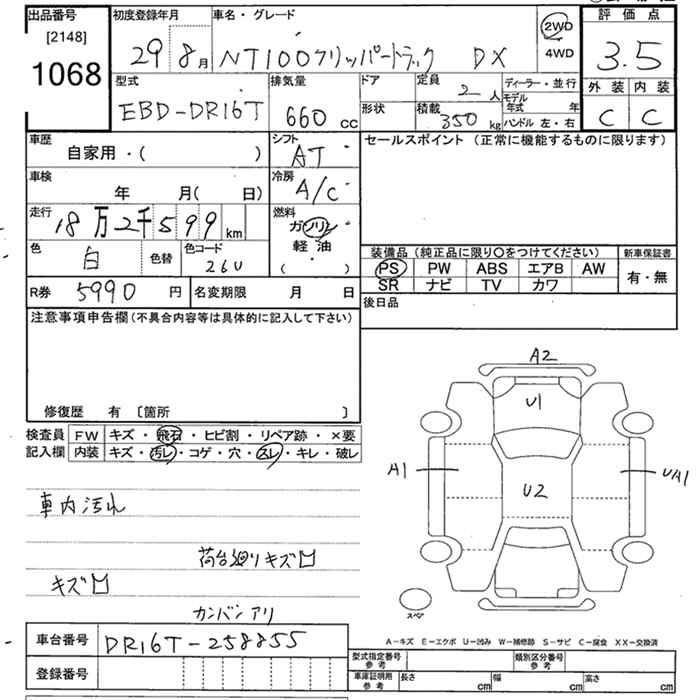 出品番号 初度登録年月 車名・グレード 2WD 4WD 評価点
[2148]
1068 29年 8月 NT100クリッパートラック DX 3.5
型式 排気量 ドア 定員 2人 ディーラー・並行 外装 内装
EBD-DR16T 660cc 形状 積載 350kg モデル年式 年 ハンドル 左・右 C C
車歴 シフト セールスポイント(正常に機能するものに限ります)
自家用・( ) AT
車検 冷房
年 月( 日) A/C
走行 燃料
18万2千599km ガソリン
軽油
( ・ )
色 色替 色コード 装備品(純正品に限り○をつけてください) 新車保証書
白 26U PS PW ABS エアB AW 有・無
SR ナビ TV カワ
R券 5990円 名変期限 月 日 後日品
注意事項申告欄(不具合内容等は具体的に記入して下さい)
修復歴 有 〔箇所 〕
検査員 FW キズ・飛石・ヒビ割・リペア跡・×要
記入欄 内装 キズ・汚レ・コゲ・穴・スレ・キレ・破レ
A2
U1
A1
UA1
U2
スペア
車内汚れ
荷台廻りキズ凹
キズ凹
カンバンアリ
A-キズ E-エクボ U-凹み W-補修跡 S-サビ C-腐食 XX-交換済
車台番号 DR16T-258855
登録番号
型式指定番号 参考 類別区分番号 参考
車庫証明用 参考 長さ cm 幅 cm 高さ cm